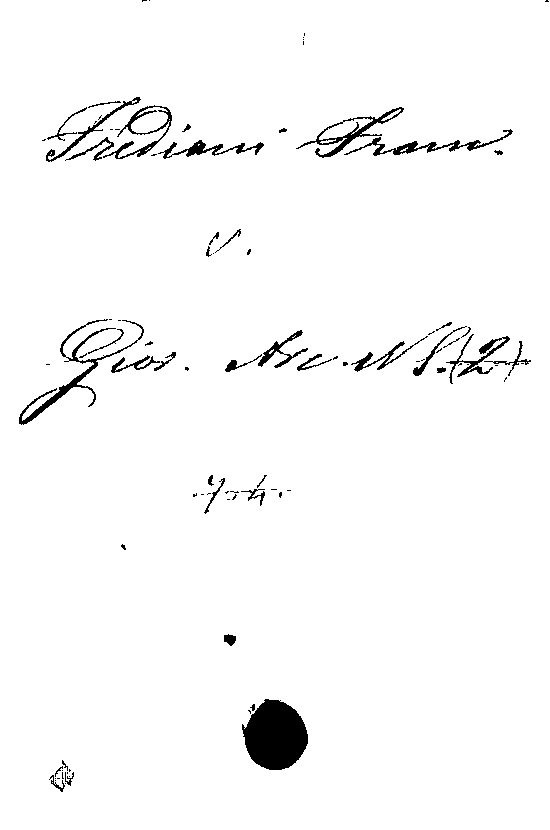 Frediani Franc.
v.
Gior. Arc. N S. (2)